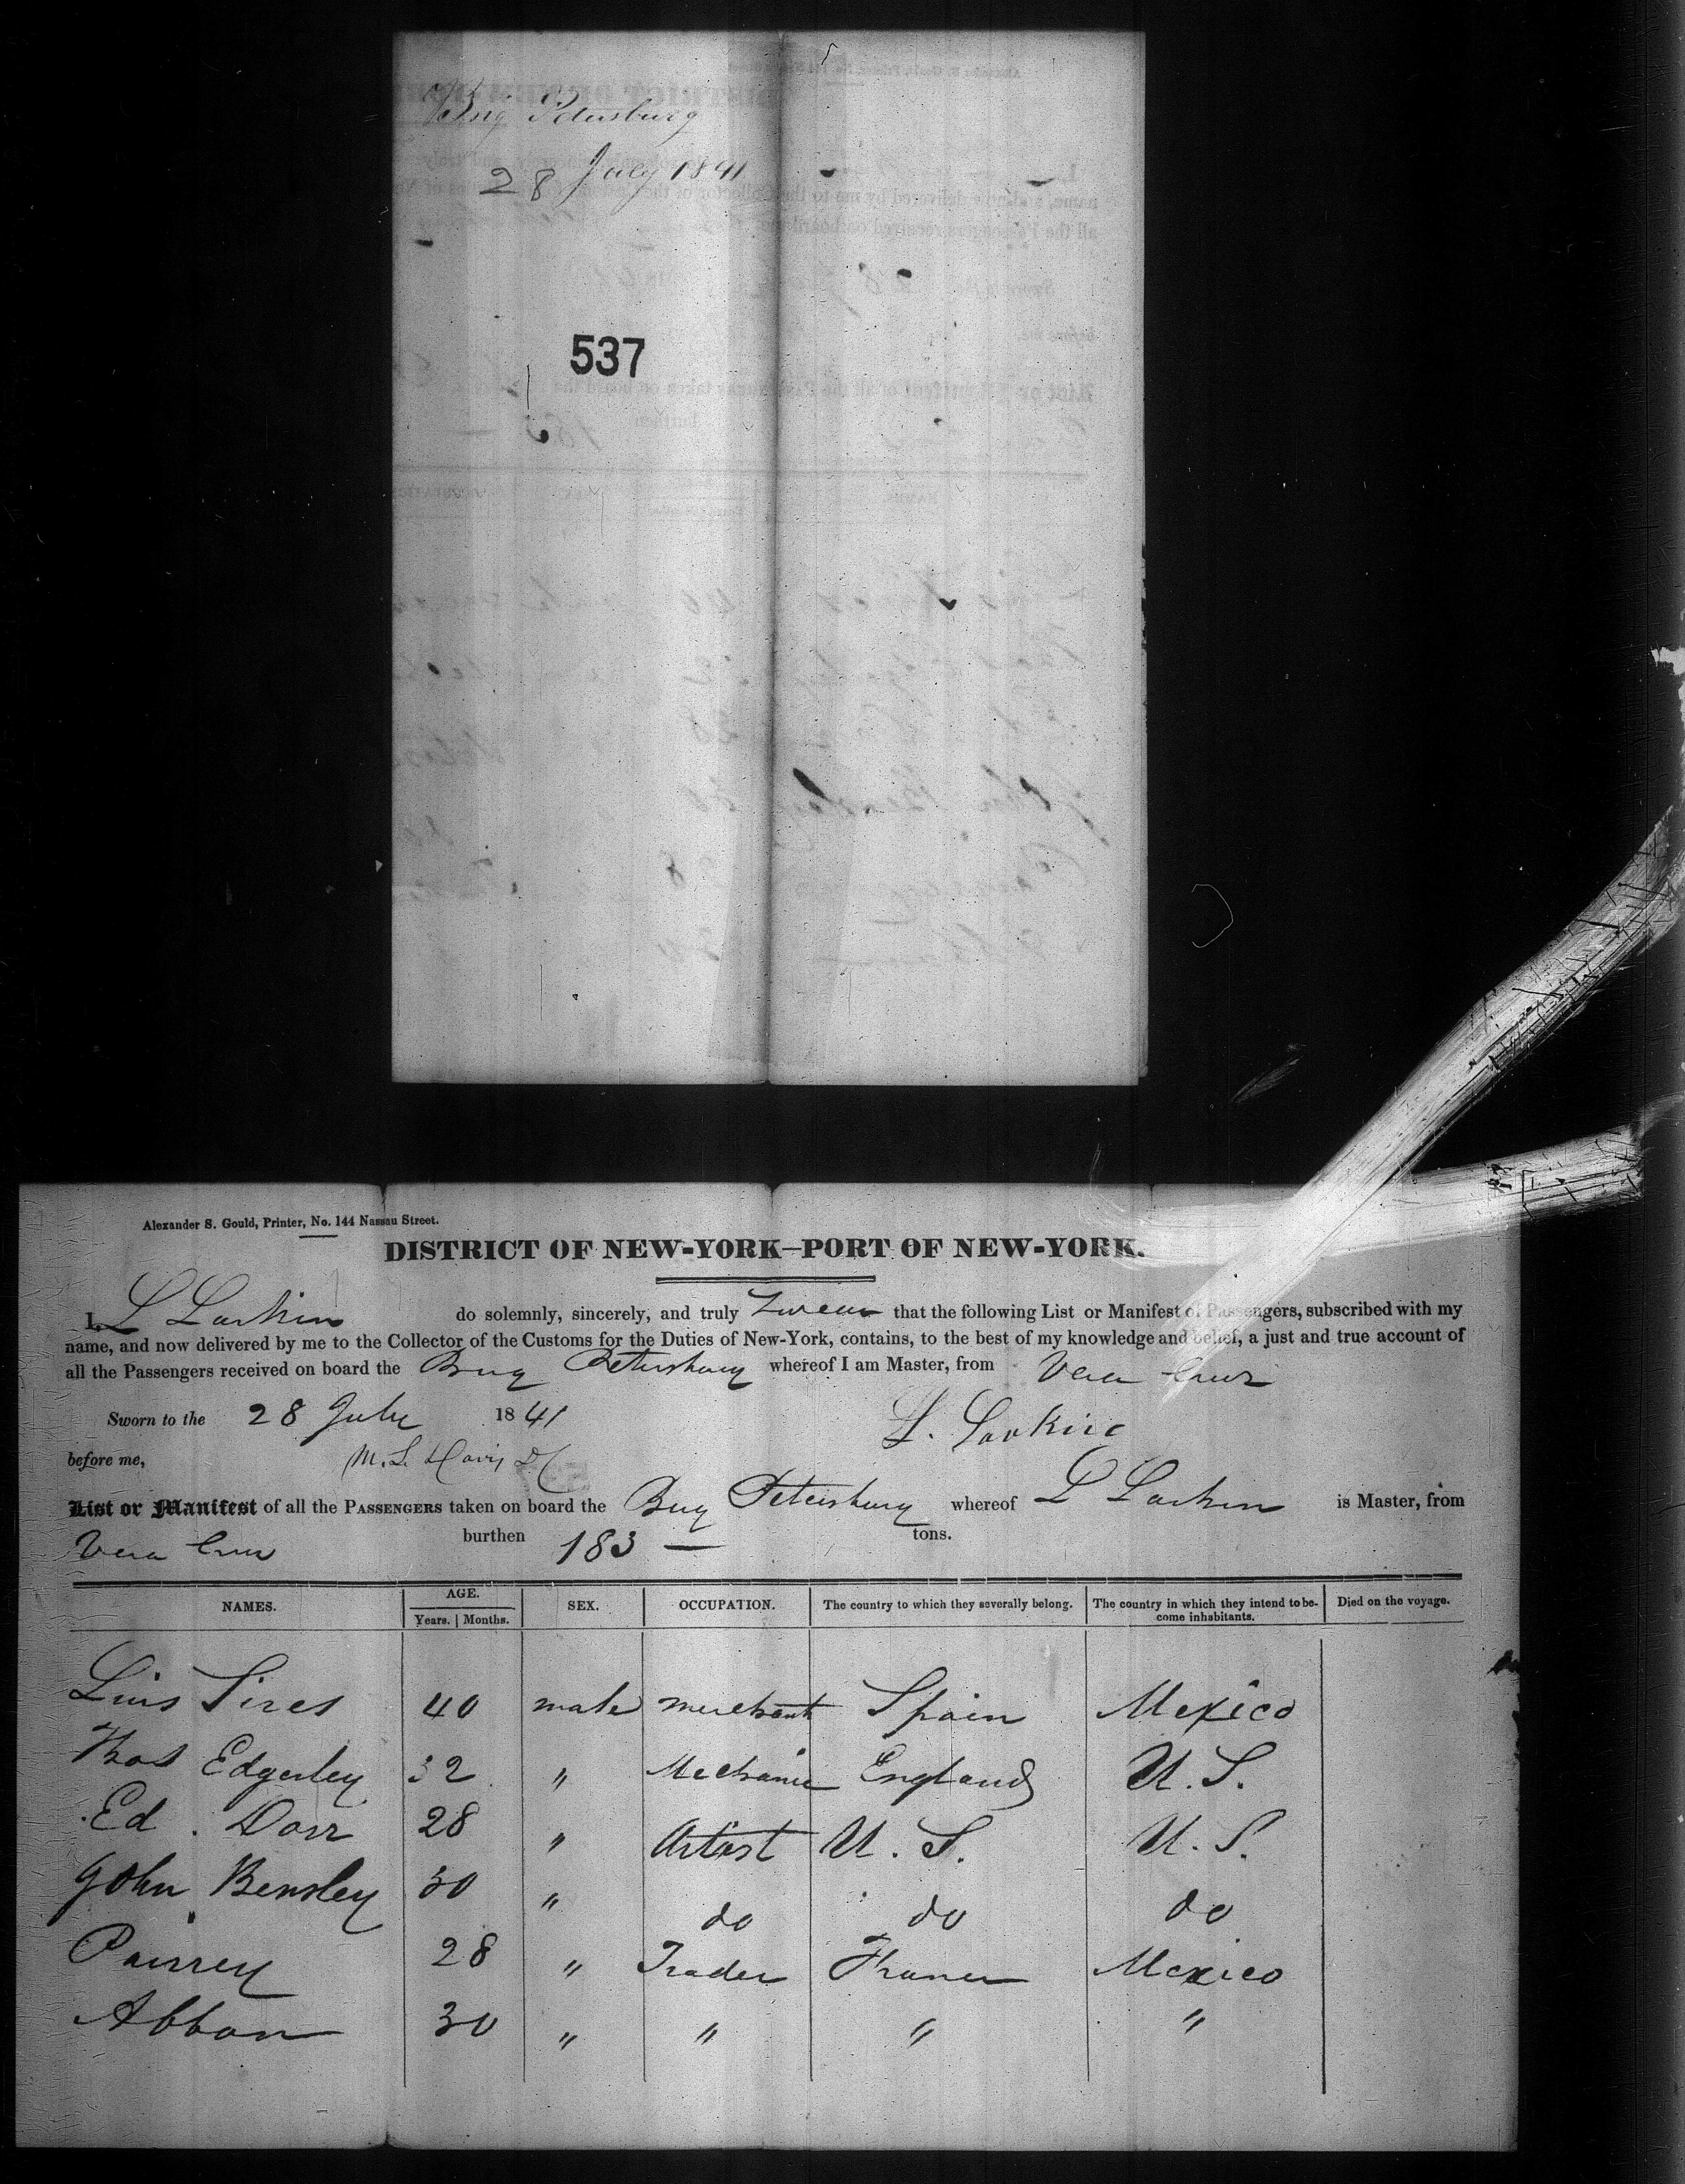 Brig Petersburg
28 July 1841
537
Alexander S. Gould, Printer, No. 144 Nassau Street.
DISTRICT OF NEW-YORK—PORT OF NEW-YORK.
I, L Larkin do solemnly, sincerely, and truly Swear that the following List or Manifest of Passengers, subscribed with my
name, and now delivered by me to the Collector of the Customs for the Duties of New-York, contains, to the best of my knowledge and belief, a just and true account of
all the Passengers received on board the Brig Petersburg whereof I am Master, from Vera Cruz
Sworn to the 28 July 1841 L. Larkin
before me, M. L. Davis
List or Manifest of all the PASSENGERS taken on board the Brig Petersburg whereof L Larkin is Master, from
Vera Cruz burthen 183 — tons.
NAMES. AGE. Years. | Months. SEX. OCCUPATION. The country to which they severally belong. The country in which they intend to become inhabitants. Died on the voyage.
Luis Sires 40 male merchant Spain Mexico
Thos Edgerley 32 " Mechanic England U. S.
Ed. Dorr 28 " Artist U. S. U. S.
John Bensley 30 " do do do
28 " Trader France Mexico
Abbon 30 " " " "